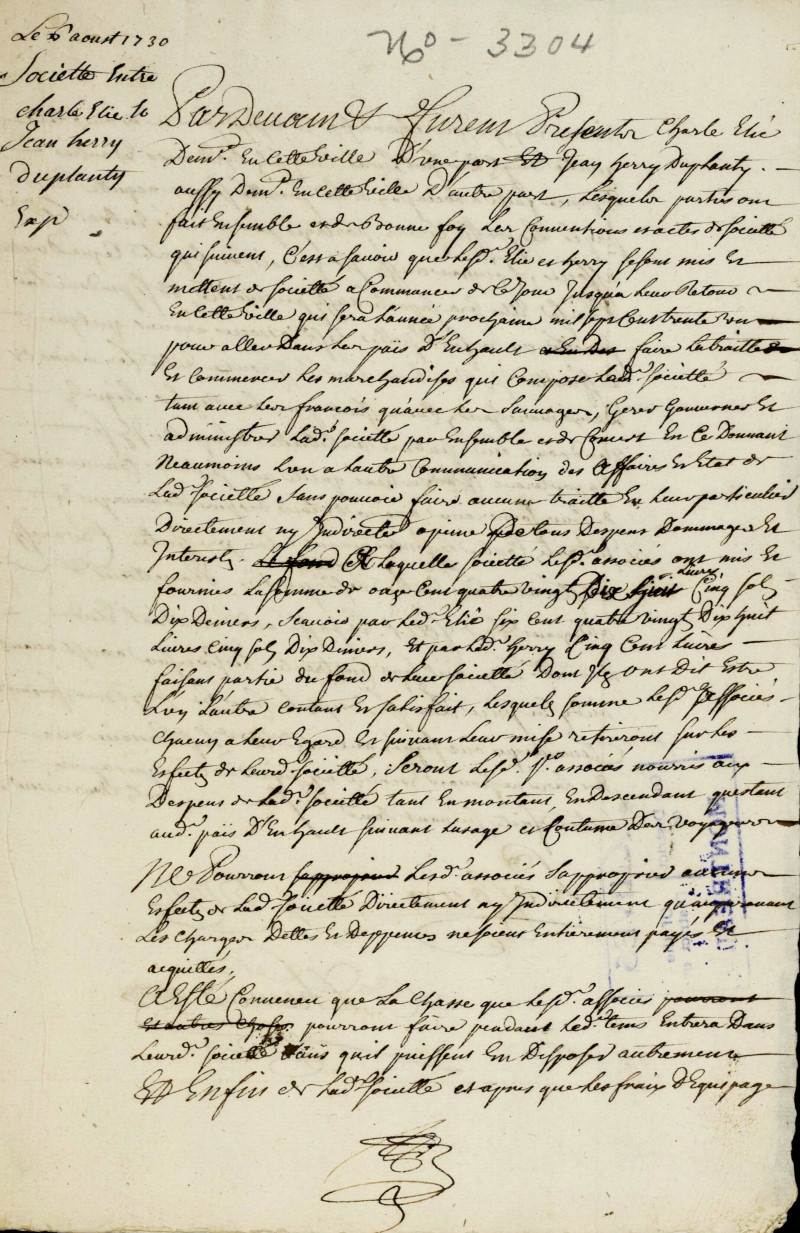 Le 6 aoust 1730
Societte Entre
charle Elie &
Jean herry
duplanty
Exp
No - 3304
Pardevant & furent Presents Charle Elie
Demt. En cette ville D'une part Et Jean herry Duplanty. -
aussy Demt. En cette ville D'autre part, Lesquels partis ont
fait Ensemble et de Bonne foy Les Conventions et actes de societté
qui suivent, C'est a savoir que Lesd. Elie et herry se sont mis Et
mettent de societté a Commancer de Ce Jour Jusqu'a Leur Retour
En cette ville qui sera L'année prochaine mil sept Cent trente & un
pour aller Dans Les païs D'En hault et En des faire La traitte
Et Commercer Les marchandises qui Compose Lad. societté
tant avec Les francois qu'avec Les Sauvages, Gerer Gouverner Et
administrer Lad. societté par Ensemble et de Concert En Ce Donnant
Neaumoins L'un a L'autre Communication des Affaires Et Etat de
Lad. societté sans pouvoir faire aucune traitte En Leur particulier
Directement ny Indirecte a peine de tous Despens Dommages Et
Interests. Le fond A Laquelle societté Lesd. associés ont mis Et
fournies La somme de onze Cent quatre vingt Dix huit Livres Cinq sols
Dix Deniers, Scavoir par Led. Elie six Cent quatre vingt Dix huit
Livres Cinq sols Dix Diniers, Et par Led. herry Cinq Cent Livres
faisant partie du fond de Leur societté Dont Ils ont Dit Estre
L'un L'autre Contant Et satisfait, Lesquels somme Lesd. Associés
Chacun a Leur Egard Et suivant Leur mise retireront sur Les
Esfects de Leurd. societté, Seront Lesd. Srs. associés nourris aux
Despens de Lad. societté tant En montant, En Descendant qu'estant
aud. païs D'En hault suivant L'usage et Coutume Des Voyageurs
Ne Pourront s'approprier Lesd. associés s'approprier aucuns
Esfects de Lad. societté Directement ny Indirectement qu'auparavant
Les charges Dettes Et Deppences ne soient Entierement payés Et
acquittés,
A Esté Convenu que La chasse que Lesd. associés pourront
Et autres choses pourront faire pendant Led. tems Entrera Dans
Leurd. societté sans qu'il puissent En Disposer autrement
Et A Enfin de Lad. societté et apres que Les fraix d'Equipage